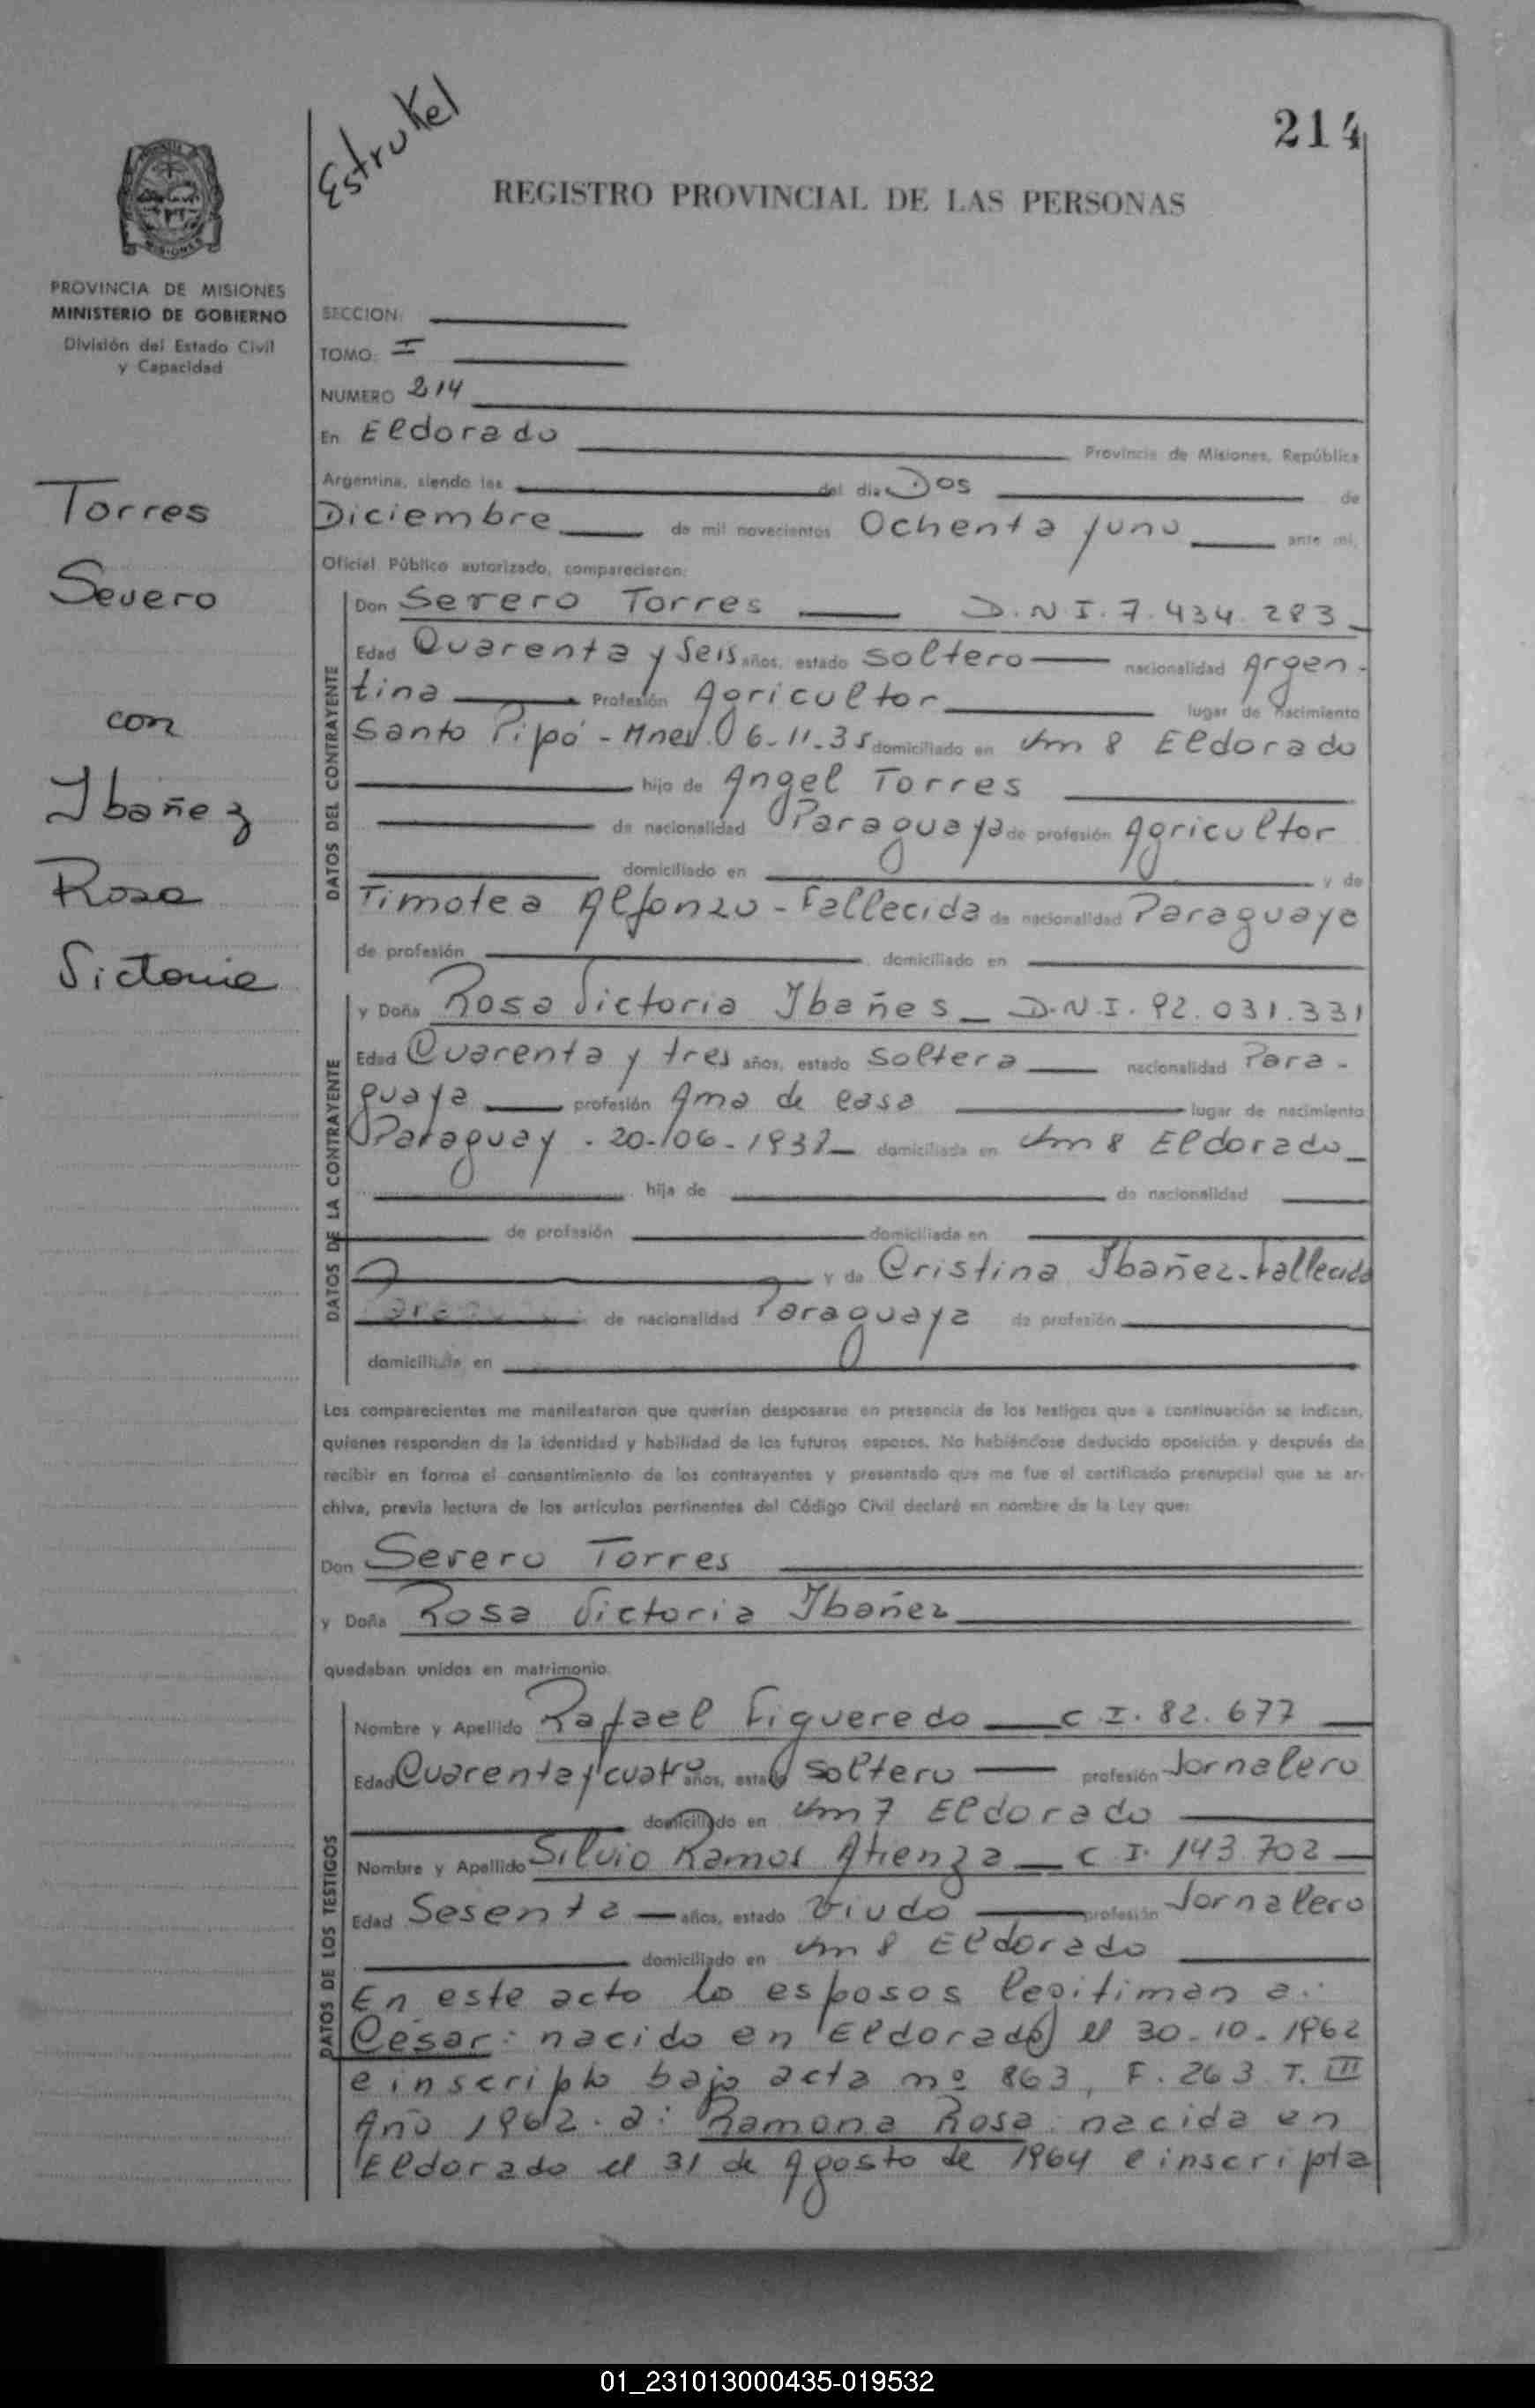 214
Estrukel
REGISTRO PROVINCIAL DE LAS PERSONAS
MISIONES
PROVINCIA DE MISIONES
MINISTERIO DE GOBIERNO
División del Estado Civil
y Capacidad
Torres
Severo
con
Ibañez
Rosa
Victoria
SECCION:
TOMO: I
NUMERO 214
En Eldorado Provincia de Misiones, República
Argentina, siendo las del día Dos de
Diciembre de mil novecientos Ochenta y uno ante mí,
Oficial Público autorizado, comparecieron:
DATOS DEL CONTRAYENTE
Don Severo Torres D.N.I. 7.434.283
Edad Quarenta y Seis años, estado Soltero nacionalidad Argen-
tina Profesión Agricultor lugar de nacimiento
Santo Pipó - Mnes. 06-11-35 domiciliado en Km 8 Eldorado
hijo de Angel Torres
de nacionalidad Paraguaya de profesión Agricultor
domiciliado en y de
Timotea Alfonzo - Fallecida de nacionalidad Paraguaya
de profesión domiciliado en
DATOS DE LA CONTRAYENTE
y Doña Rosa Victoria Ibañes D.N.I. 92.031.331
Edad Cuarenta y tres años, estado Soltera nacionalidad Para-
guaya profesión Ama de casa lugar de nacimiento
Paraguay - 20-06-1938 domiciliada en Km 8 Eldorado
hija de de nacionalidad
de profesión domiciliada en
y de Cristina Ibañez - Fallecida
de nacionalidad Paraguaya de profesión
domiciliada en
Los comparecientes me manifestaron que querían desposarse en presencia de los testigos que a continuación se indican,
quienes responden de la identidad y habilidad de los futuros esposos. No habiéndose deducido oposición y después de
recibir en forma el consentimiento de los contrayentes y presentado que me fue el certificado prenupcial que se ar-
chiva, previa lectura de los artículos pertinentes del Código Civil declaré en nombre de la Ley que:
Don Severo Torres
y Doña Rosa Victoria Ibañez
quedaban unidos en matrimonio.
DATOS DE LOS TESTIGOS
Nombre y Apellido Rafael Figueredo C.I. 82.677
Edad Cuarenta y cuatro años, estado Soltero profesión Jornalero
domiciliado en Km 7 Eldorado
Nombre y Apellido Silvio Ramos Atienza C.I. 143.702
Edad Sesenta años, estado Viudo profesión Jornalero
domiciliado en Km 8 Eldorado
En este acto lo esposos legitiman a:
César: nacido en Eldorado el 30-10-1962
e inscripto bajo acta nº 863, F. 263 T. III
Año 1962. a: Ramona Rosa: nacida en
Eldorado el 31 de Agosto de 1964 e inscripta
01_231013000435-019532